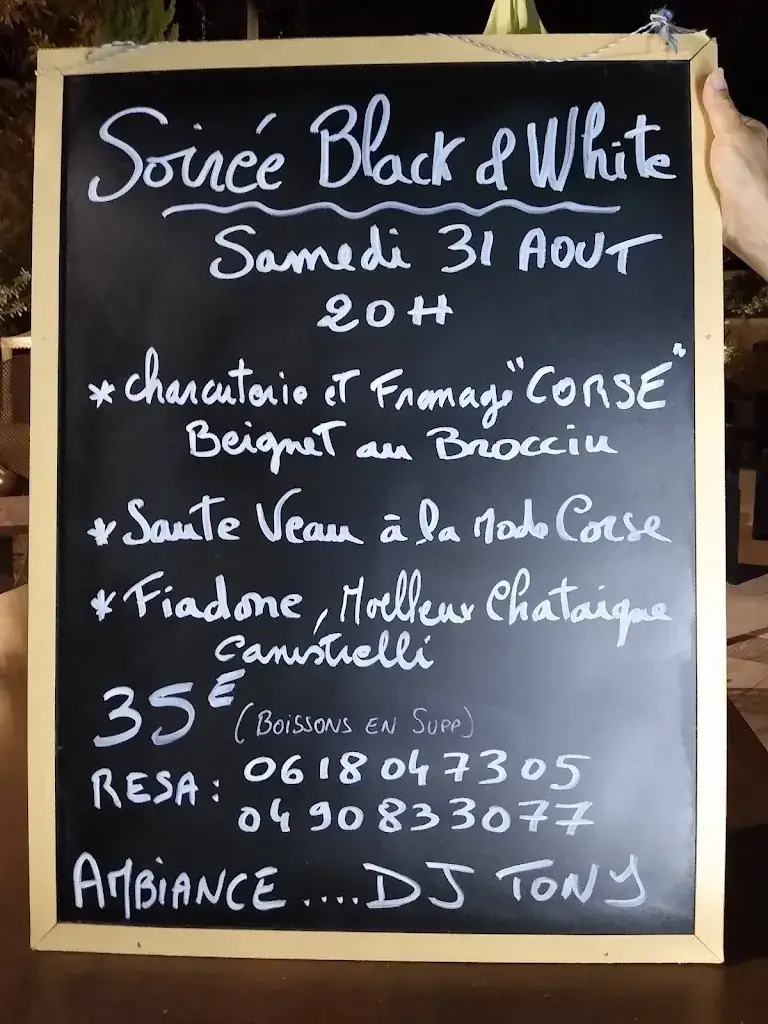 Soirée Black & White
Samedi 31 AOUT
20H
* Charcuterie et Fromage "CORSE"
Beignet au Brocciu
* Saute Veau à la Mode Corse
* Fiadone, Moelleux Chataigne
Canistrelli
35€ (BOISSONS EN SUPP)
RESA : 0618047305
0490833077
AMBIANCE .... DJ TONY